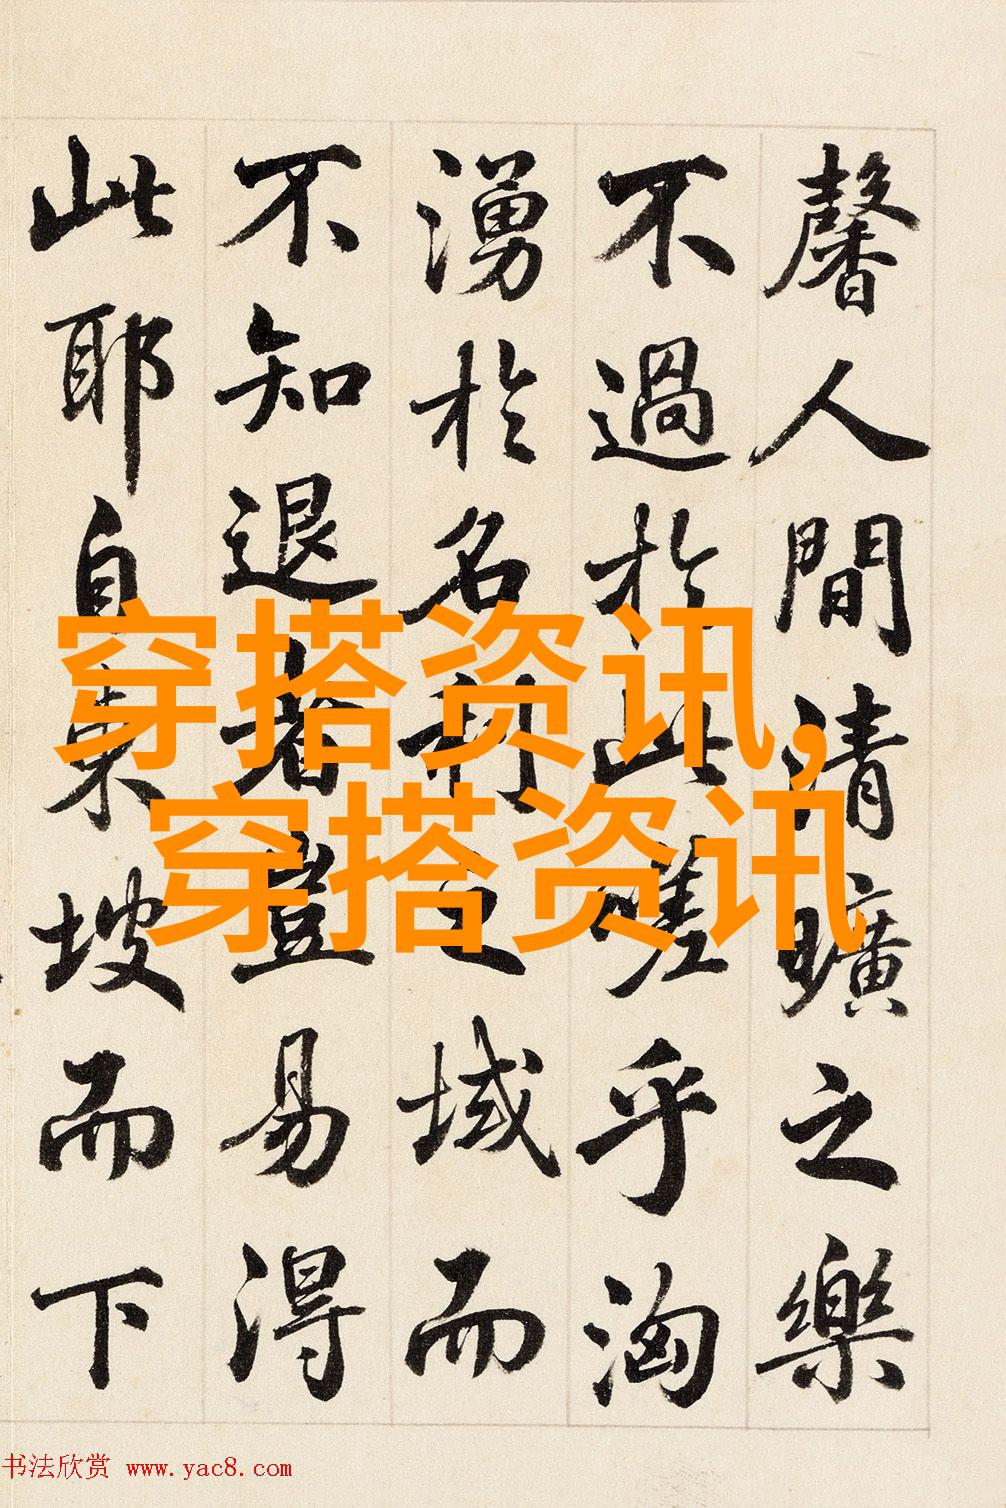 馨人間清曠之樂
不過於此嗟乎洶
湧於名利之域而
不知退者豈易得
此耶自東坡而下
穿搭资讯,
穿搭资讯
书法欣赏 www.yac8.com